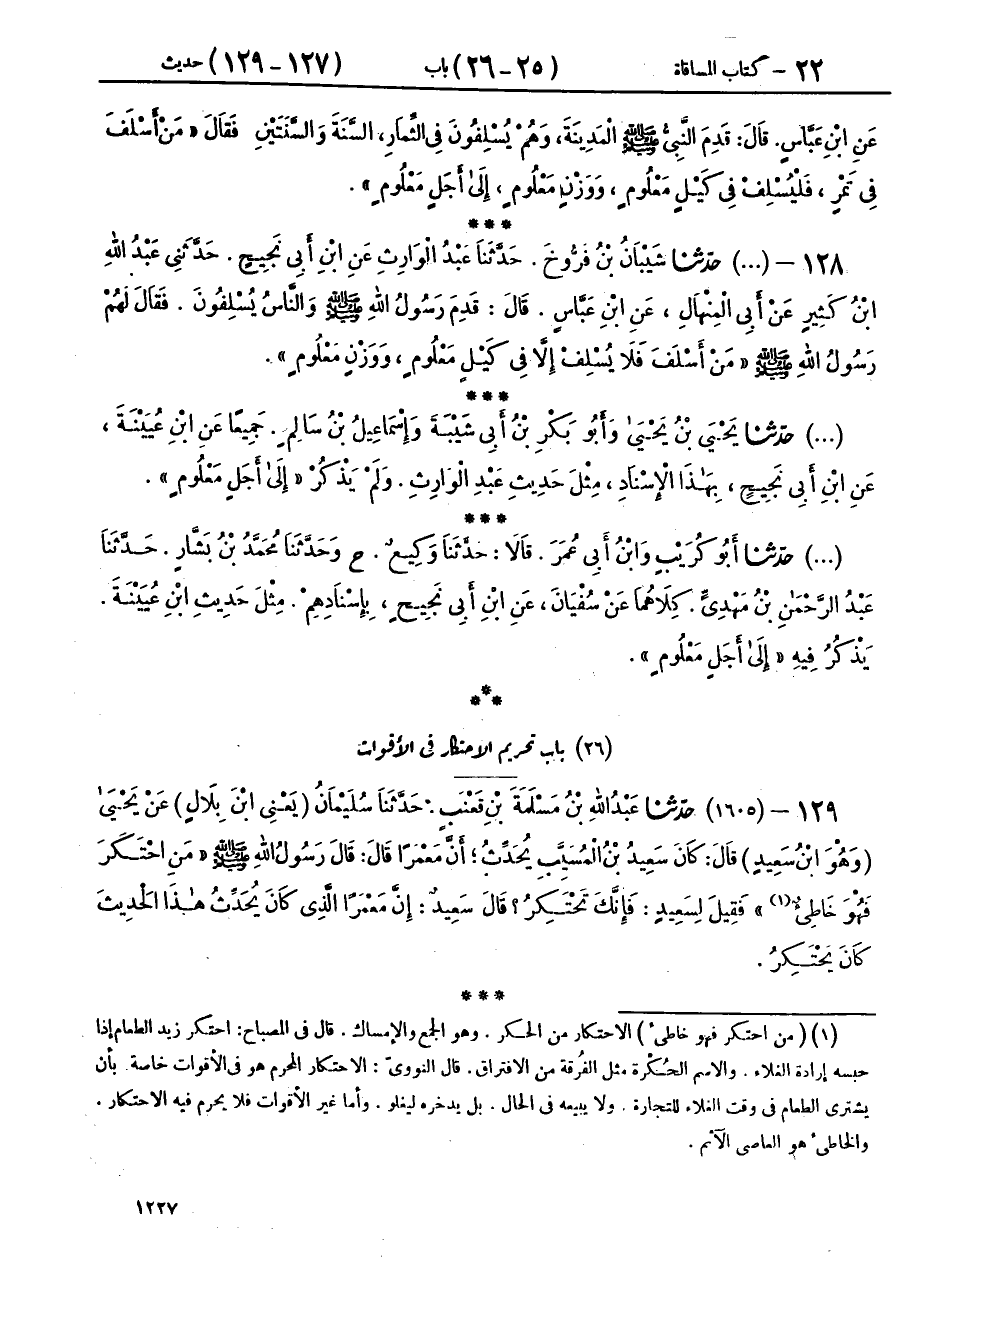 ٢٢ – كتاب المساقاة (٢٥ – ٢٦) باب (١٢٧ – ١٢٩) حديث
عَنِ ابْنِ عَبَّاسٍ. قَالَ: قَدِمَ النَّبِيُّ ﷺ الْمَدِينَةَ، وَهُمْ يُسْلِفُونَ فِي الثِّمَارِ، السَّنَةَ وَالسَّنَتَيْنِ فَقَالَ « مَنْ أَسْلَفَ
فِي تَمْرٍ ، فَلْيُسْلِفْ فِي كَيْلٍ مَعْلُومٍ ، وَوَزْنٍ مَعْلُومٍ ، إِلَىٰ أَجَلٍ مَعْلُومٍ » .
***
١٢٨ – (...) حَدَّثَنَا شَيْبَانُ بْنُ فَرُّوخَ . حَدَّثَنَا عَبْدُ الْوَارِثِ عَنِ ابْنِ أَبِي نَجِيحٍ . حَدَّثَنِي عَبْدُ اللهِ
ابْنُ كَثِيرٍ عَنْ أَبِي الْمِنْهَالِ ، عَنِ ابْنِ عَبَّاسٍ . قَالَ : قَدِمَ رَسُولُ اللهِ ﷺ وَالنَّاسُ يُسْلِفُونَ . فَقَالَ لَهُمْ
رَسُولُ اللهِ ﷺ « مَنْ أَسْلَفَ فَلَا يُسْلِفْ إِلَّا فِي كَيْلٍ مَعْلُومٍ ، وَوَزْنٍ مَعْلُومٍ » .
***
(...) حَدَّثَنَا يَحْيَىٰ بْنُ يَحْيَىٰ وَأَبُو بَكْرِ بْنُ أَبِي شَيْبَةَ وَإِسْمَاعِيلُ بْنُ سَالِمٍ . جَمِيعًا عَنِ ابْنِ عُيَيْنَةَ ،
عَنِ ابْنِ أَبِي نَجِيحٍ ، بِهَٰذَا الْإِسْنَادِ ، مِثْلَ حَدِيثِ عَبْدِ الْوَارِثِ . وَلَمْ يَذْكُرْ « إِلَىٰ أَجَلٍ مَعْلُومٍ » .
***
(...) حَدَّثَنَا أَبُو كُرَيْبٍ وَابْنُ أَبِي عُمَرَ . قَالَا : حَدَّثَنَا وَكِيعٌ . ح وَحَدَّثَنَا مُحَمَّدُ بْنُ بَشَّارٍ . حَدَّثَنَا
عَبْدُ الرَّحْمَٰنِ بْنُ مَهْدِيٍّ . كِلَاهُمَا عَنْ سُفْيَانَ ، عَنِ ابْنِ أَبِي نَجِيحٍ ، بِإِسْنَادِهِمْ . مِثْلَ حَدِيثِ ابْنِ عُيَيْنَةَ .
يَذْكُرُ فِيهِ « إِلَىٰ أَجَلٍ مَعْلُومٍ » .
***
(٢٦) باب تحريم الاحتكار في الأقوات
١٢٩ – (١٦٠٥) حَدَّثَنَا عَبْدُ اللهِ بْنُ مَسْلَمَةَ بْنِ قَعْنَبٍ . حَدَّثَنَا سُلَيْمَانُ ( يَعْنِي ابْنَ بِلَالٍ ) عَنْ يَحْيَىٰ
( وَهُوَ ابْنُ سَعِيدٍ ) قَالَ : كَانَ سَعِيدُ بْنُ الْمُسَيَّبِ يُحَدِّثُ ؛ أَنَّ مَعْمَرًا قَالَ: قَالَ رَسُولُ اللهِ ﷺ « مَنِ احْتَكَرَ
فَهُوَ خَاطِئٌ (١) » فَقِيلَ لِسَعِيدٍ : فَإِنَّكَ تَحْتَكِرُ ؟ قَالَ سَعِيدٌ : إِنَّ مَعْمَرًا الَّذِي كَانَ يُحَدِّثُ هَٰذَا الْحَدِيثَ
كَانَ يَحْتَكِرُ .
***
(١) ( من احتكر فهو خاطئ ) الاحتكار من الحكر . وهو الجمع والإمساك . قال في المصباح: احتكر زيد الطعام إذا
حبسه إرادة الغلاء . والاسم الحُكْرة مثل الفُرقة من الافتراق. قال النوويّ : الاحتكار المحرم هو في الأقوات خاصة . بأن
يشترى الطعام في وقت الغلاء للتجارة . ولا يبيعه في الحال . بل يدخره ليغلو . وأما غير الأقوات فلا يحرم فيه الاحتكار .
والخاطئ هو العاصى الآثم .
١٢٢٧